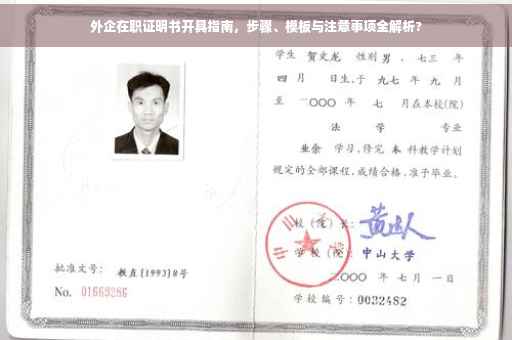 外企在职证明书开具指南，步骤、模板与注意事项全解析?
学生 贺文龙 性别 男 、七三 年
四 月 日生,于 九七 年 九 月
至 二〇〇〇 年 七 月在本校(院)
法 学 专业
业余 学习,修完 本 科教学计划
规定的全部课程,成绩合格,准予毕业。
校 (院) 长:
学 校 (院): 中山大学
二〇〇〇 年 七 月 一 日
学校编号: 0032482
批准文号: 教直[1993]8号
No. 01669286